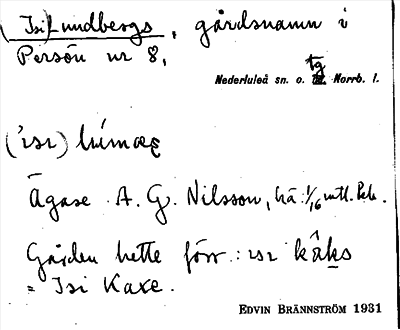 (Isi) Lundbergs, gårdsnamn i
Persön nr 8,
Nederluleå sn. o. tg. Norrb. l.
Ägare A. G. Nilsson, hä 1/16 mtl. Psk.
Gården hette förr: ısı kâks
= Isi Kaxe.
EDVIN BRÄNNSTRÖM 1931